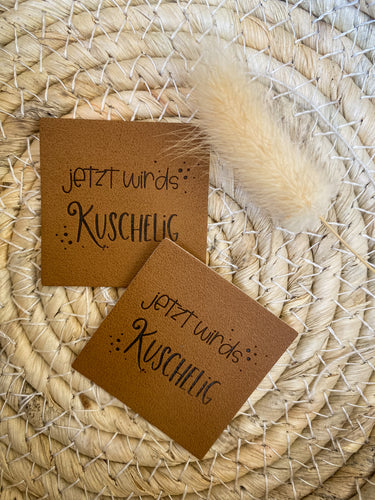 jetzt wirds
KUSCHELIG
jetzt wirds
KUSCHELIG